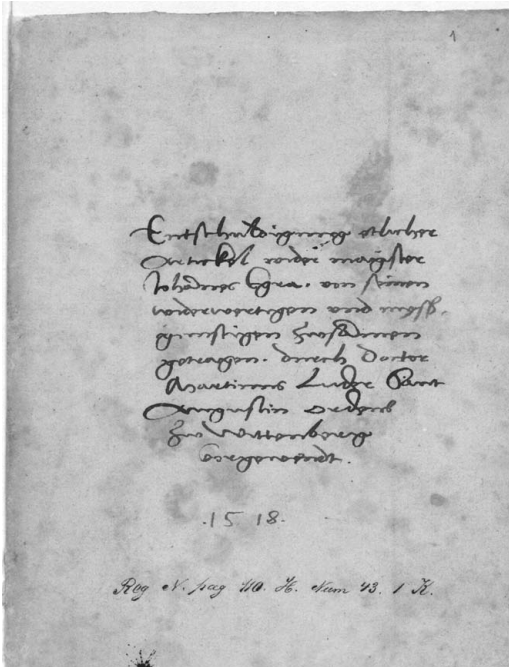 1
Entschuldigung etlicher
Artickel wider magister
Johannes Egra. von seinen
widerwertigen und mysß-
gunstigen zusamen
getragen. durch doctor
Martinus Luder Sanct
Augustin ordens
zw Wittenberg
vorgewendt.
.1518.
Reg N. pag 110. H. Num 43. 1 K.